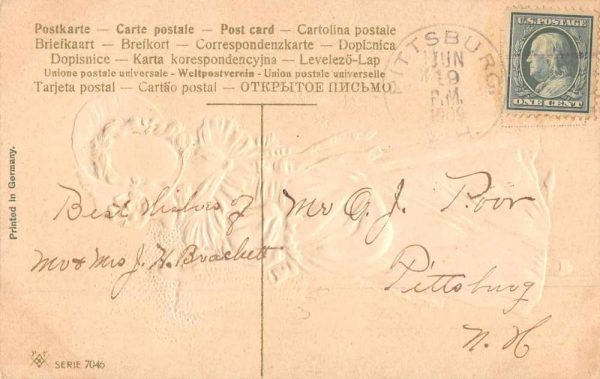 Postkarte — Carte postale — Post card — Cartolina postale
Briefkaart — Brefkort — Correspondenzkarte — Dopisnica
Dopisnice — Karta korespondencyjna — Levelező-Lap
Unione postale universale - Weltpostverein - Union postale universelle
Tarjeta postal — Cartão postal — ОТКРЫТОЕ ПИСЬМО
PITTSBURG
JUN
19
P.M.
N.H.
U.S. POSTAGE
ONE CENT
Printed in Germany.
Best Wishes of
Mr & Mrs J. H. Brackett
Mr O. J. Poor
Pittsburg
N. H
SERIE 7046